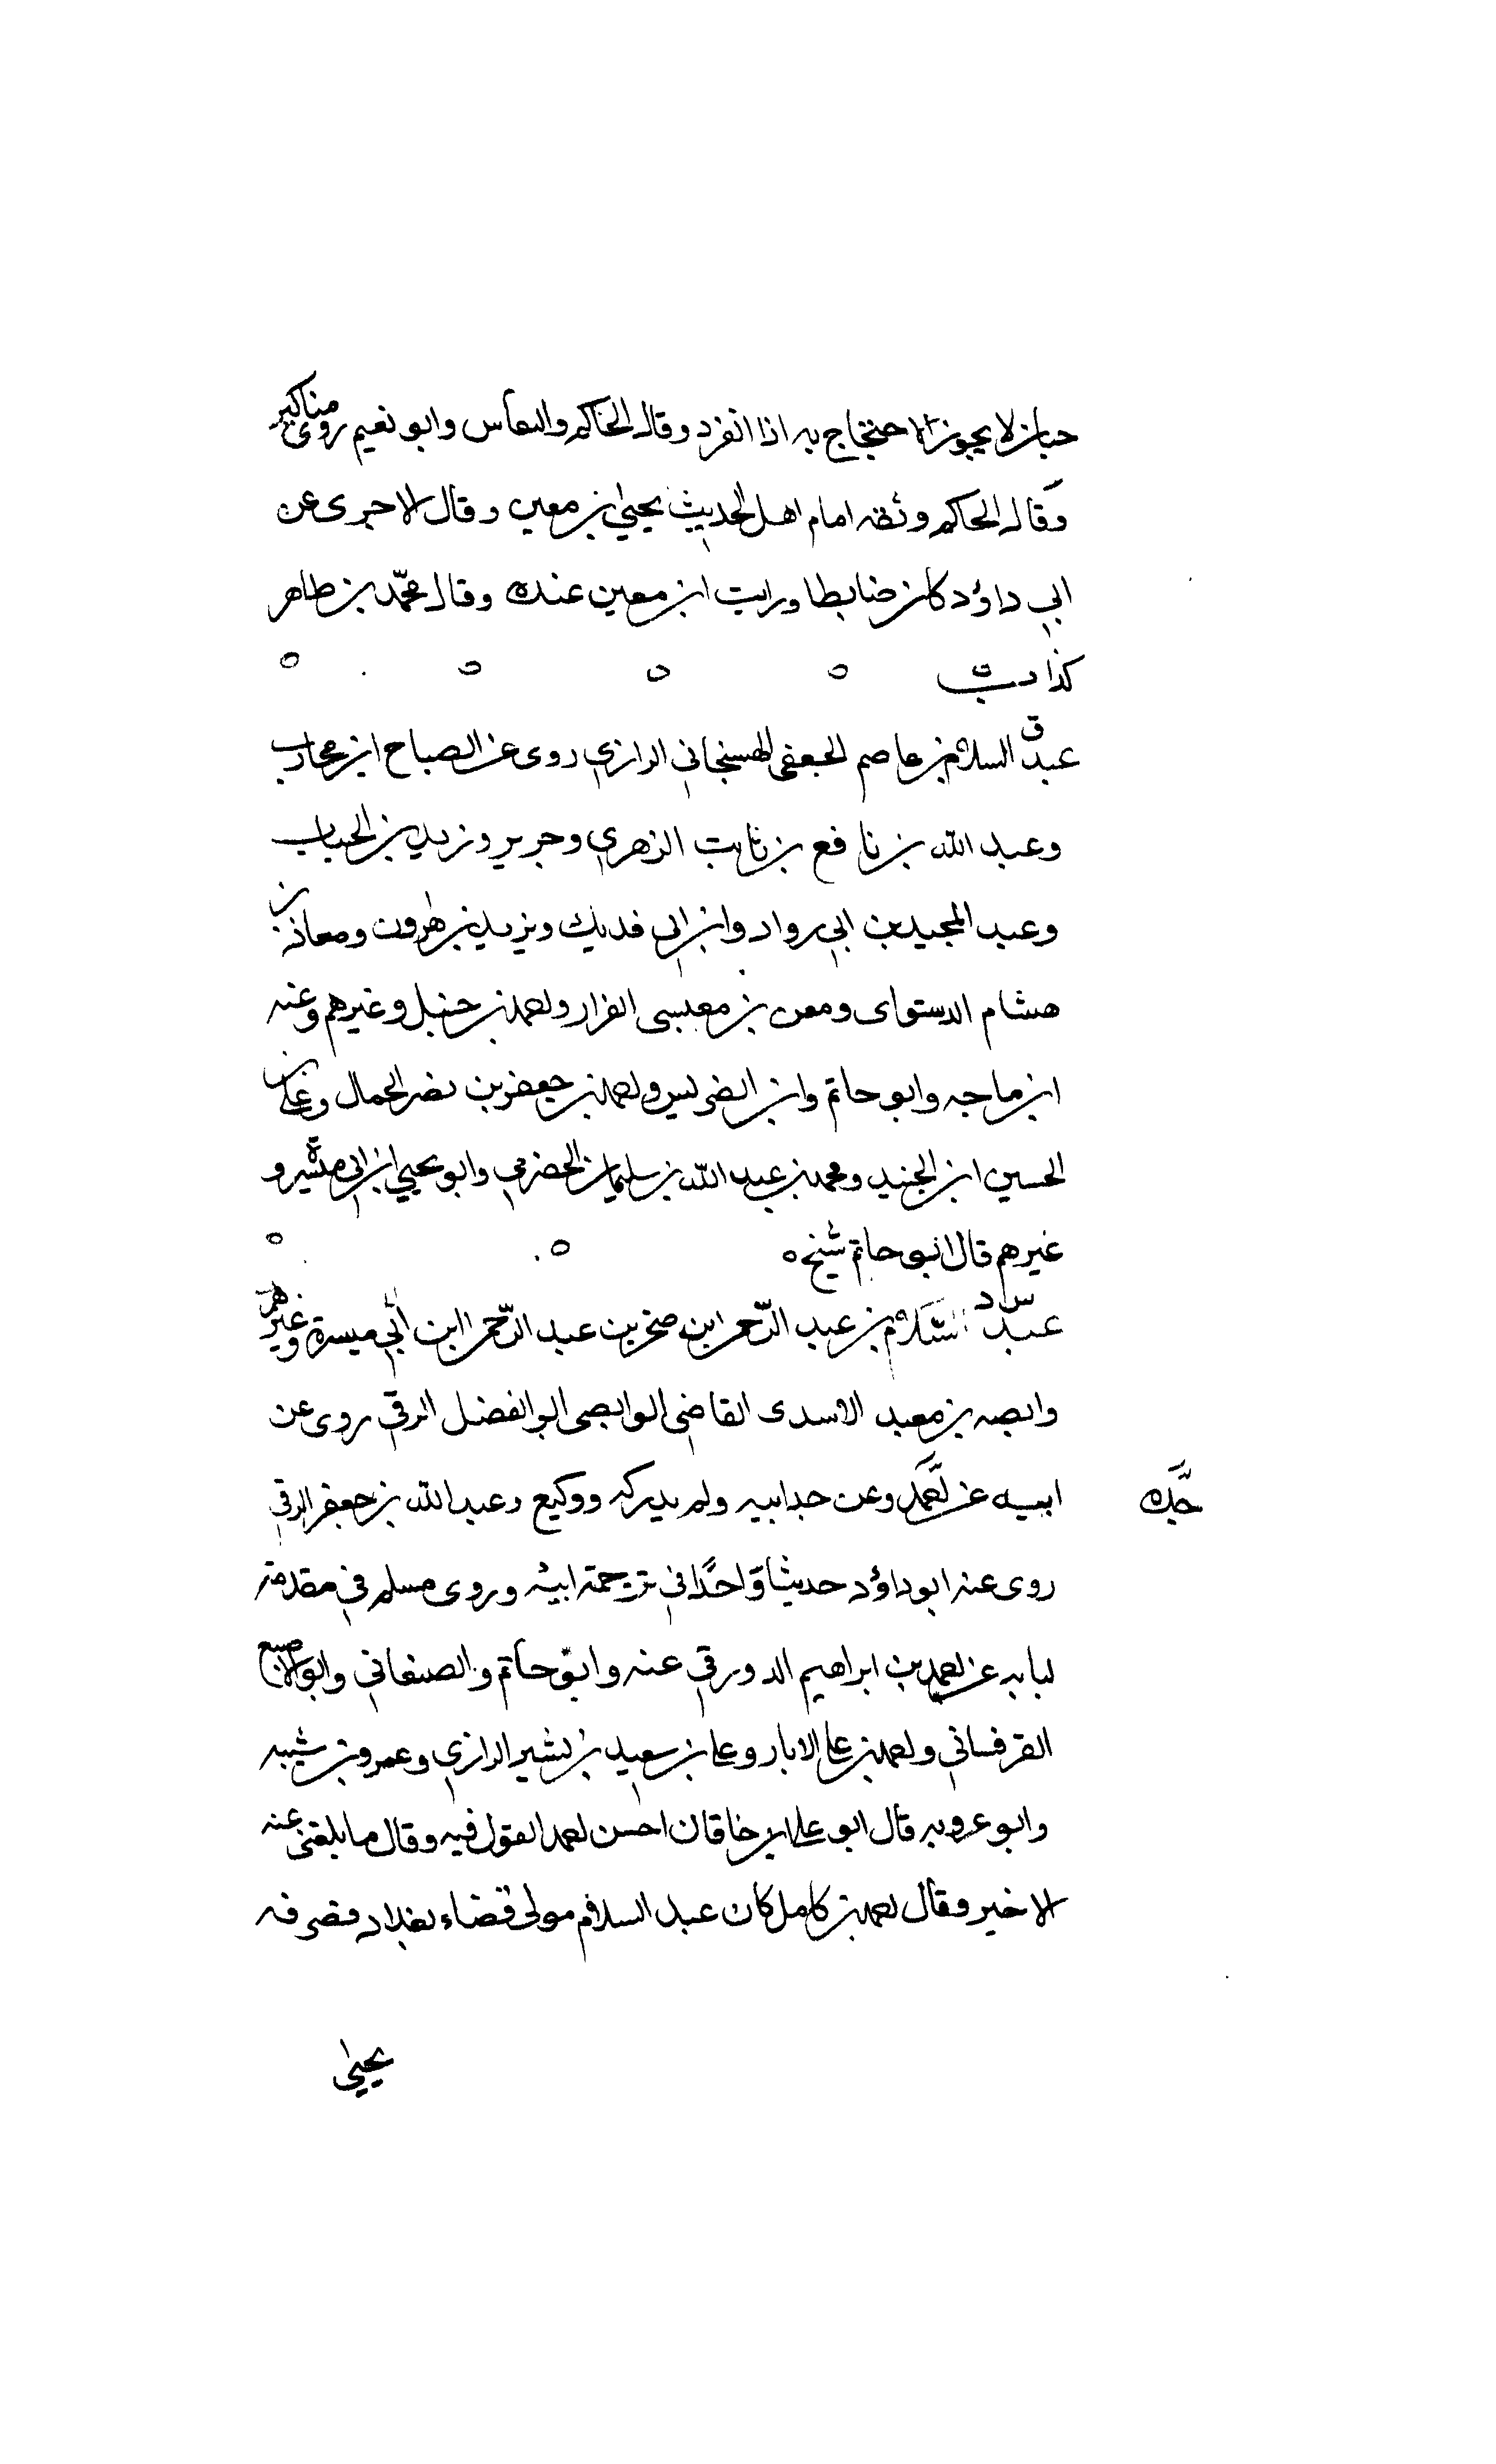 حبان لا يجوز الاحتجاج به اذا انفرد وقال الحاكم والنعاس وابو نعيم روى مناكير
وقال الحاكم وثقه امام اهل الحديث يحيى ابن معين وقال الاجرى عن
ابي داؤد كان ضابطا ورايت ابن معين عنده وقال محمد بن طاهر
كذاب
ق
عبد السلام بن عاصم الجعفي الهسنجاني الرازي روى عن الصباح ابن محارب
وعبد الله بن نافع بن ثابت الزهري وجرير وزيد بن الحباب
وعبد المجيد بن ابي رواد وابن ابي فديك ويزيد بن هرون ومعاذ بن
هشام الدستواى ومعن بن عيسى القزاز واحمد بن حنبل وغيرهم وعنه
ابن ماجه وابو حاتم وابن الضريس واحمد بن جعفر بن نصر الجمال وعلى بن
الحسين ابن الجنيد ومحمد بن عبد الله بن سليمان الحضرمي وابو يحيى ابن ابي ميسرة و
غيرهم قال ابو حاتم شيخ ه
عبد السلام بن عبد الرحمن ابن صخر بن عبد الرحمن ابن ابي ميسرة وغيرهم
وابصه بن معبد الاسدى القاضي الوابصى ابو الفضل الرقي روى عن
ابيه عن وعن جد ابيه ولم يدركه ووكيع وعبد الله بن جعفر الرقي
جده
روى عنه ابو داؤد حديثا واحدا في ترجمة ابيه وروى مسلم في مقدمة
لبابه عن احمد بن ابراهيم الدورقي عنه وابو حاتم والصنعاني وابو الاصبع
القرفساني واحمد بن على الابار وعلى بن سعيد بن بشير الرازي وعمرو بن شيبه
وابو عروبه قال ابو على ابن خاقان احسن احمد القول فيه وقال ما بلغنى عنه
الا خير وقال احمد بن كامل كان عبد السلام مولى قضاء بغداد فصرفه
يحيى